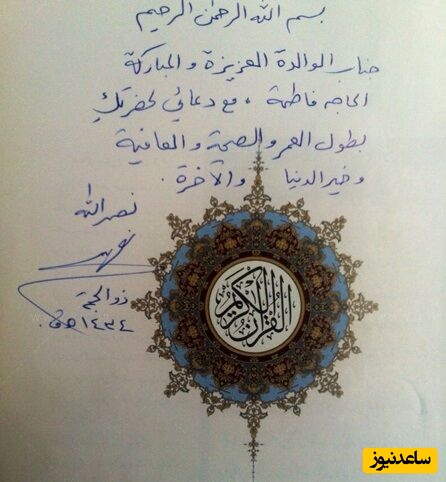 بسم الله الرحمن الرحيم
جناب الوالدة العزيزة والمباركة
الحاجه فاطمة ، مع دعائي لحضرتكِ
بطول العمر والصحة والعافية
وخير الدنيا والآخرة .
نصرالله
ذوالحجة
١٤٣٤ هـق.
القرآن الكريم
ساعدنیوز